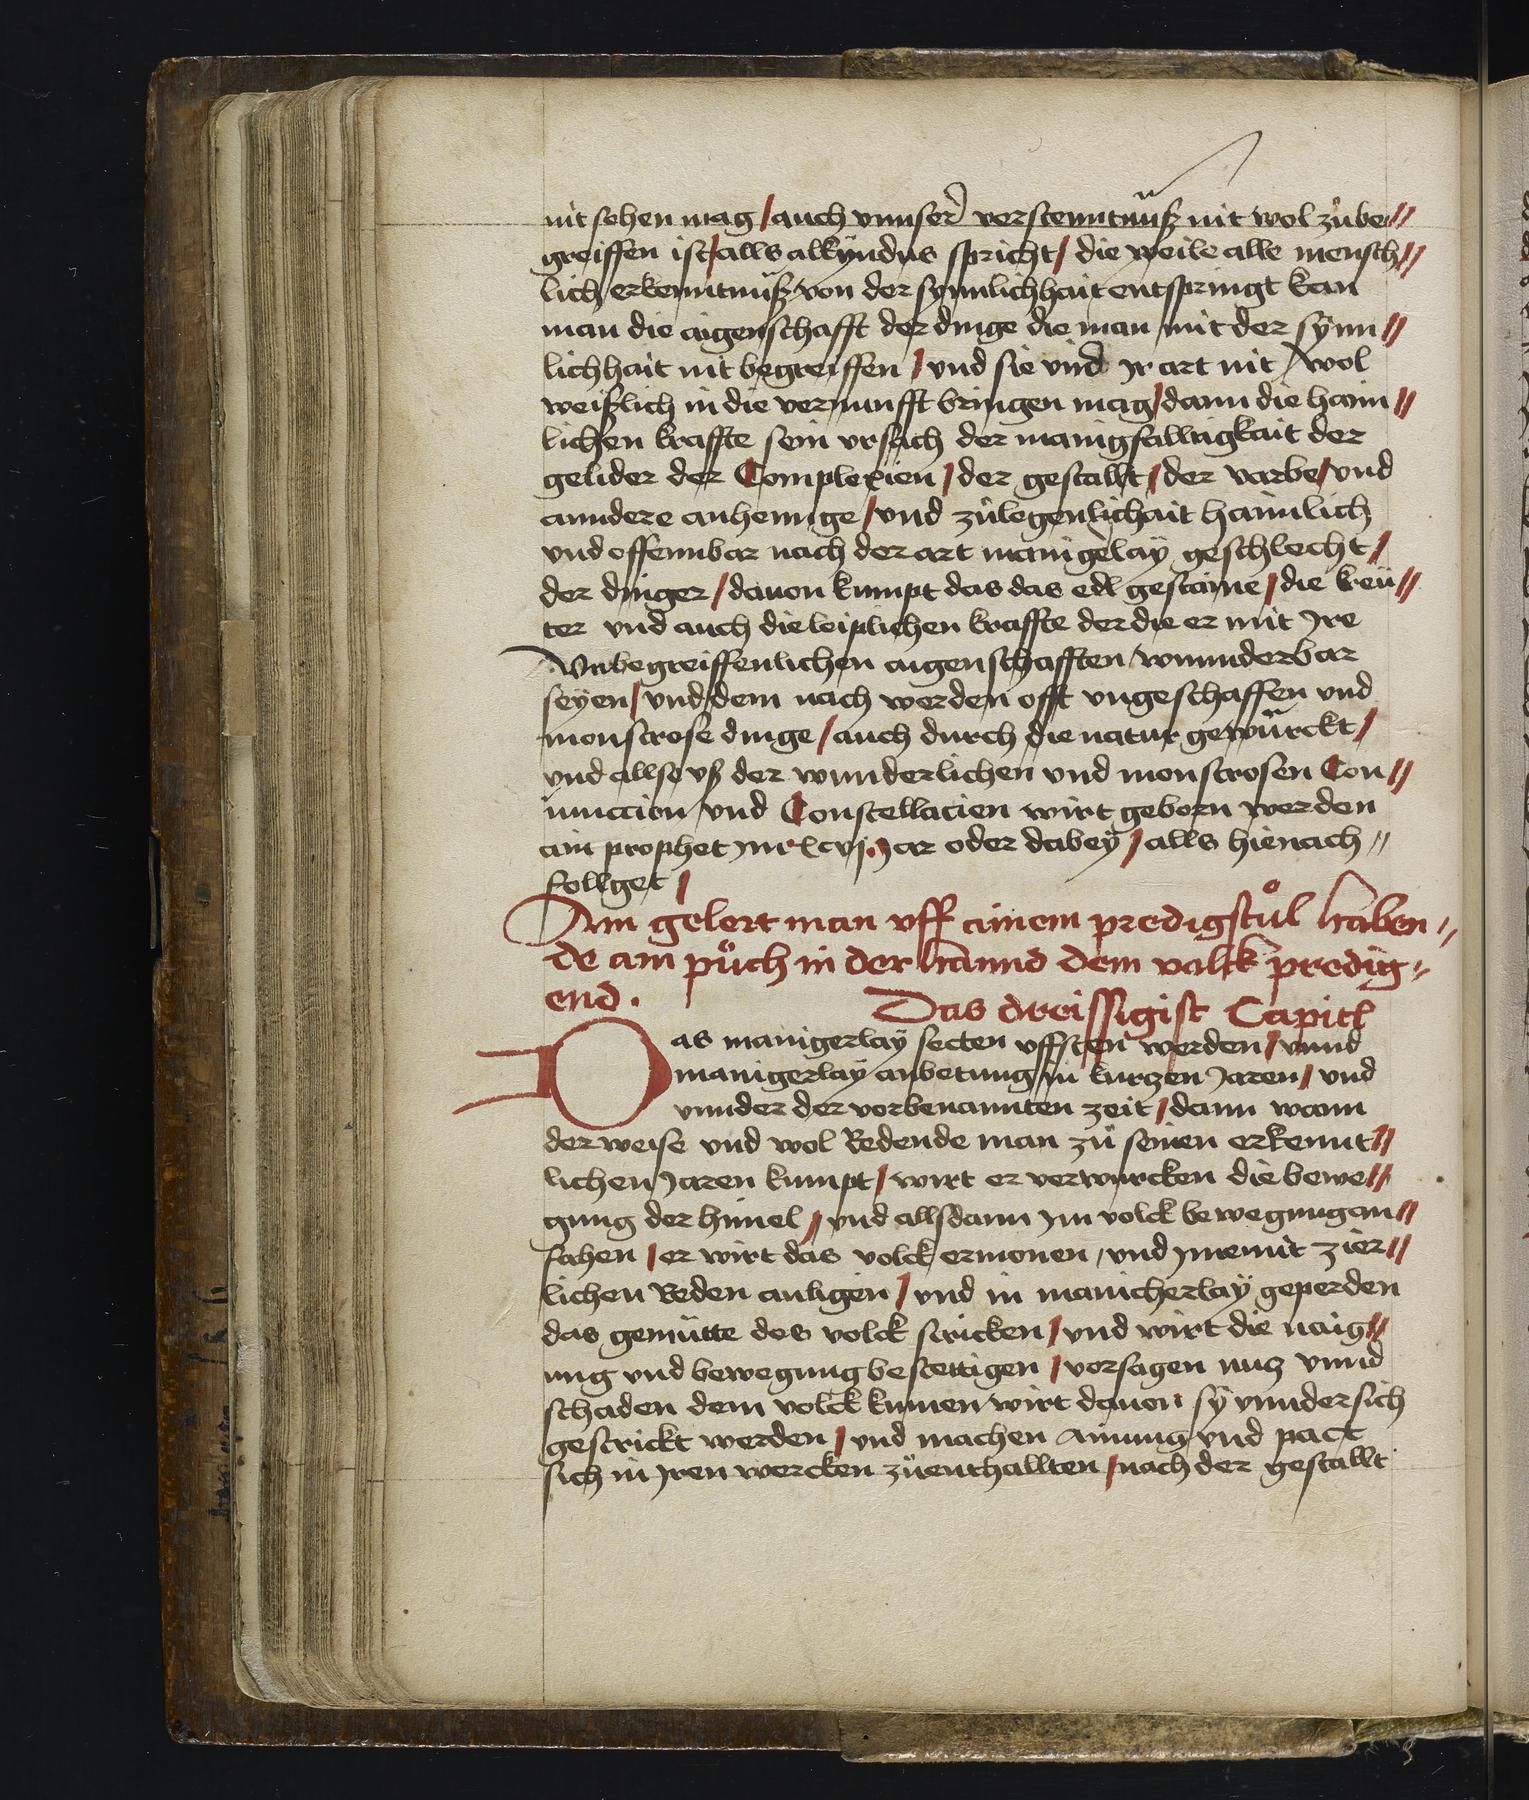 nit sehen mag / auch vnnser verstenntnüß nit wol zůbe//
greiffen ist / alls alkyndus spricht / die weile alle mensch//
lich erkenntnuß von der synnlichhait entspringt kan
man die aigenschafft der dinge die man mit der synn//
lichhait nit begreiffen / vnd sie vnd Ir art nit wol
weißlich in die vernunfft bringen mag / dann die haim//
lichen kraffte sein vrsach der manigfalltigkait der
gelider der Complexien / der gestallt / der varbe / vnd
anndere anhennge / vnd zůlegenlichait haimlich
vnd offennbar nach der art manigelaÿ geschlecht /
der dinger / dauon kumpt das das edl gestaine / die kreü//
ter vnd auch die leiplichen kraffte der die er mit Ire
Vnbegreiffenlichen aigenschafften wunnderbar
seyen / vnd dem nach werden offt vngeschaffen vnd
monstrose dinge / auch durch die natur gewürckt /
vnd allso vß der wunderlichen vnd monstrosen Con//
iunction vnd Constellacien wirt geborn werden
ain prophet Im lxxvj. Jar oder dabeÿ / alls hienach //
follget /
Ain gelert man vff ainem predigstůl haben //
de ain půch in der hannd dem volck predig //
end. Das dreissigist Capitl
Das manigerlaÿ secten vffsten werden / vnnd
manigerlaÿ anbetung in kurtzen Jaren / vnd
vnnder der vorbenannten zeit / dann wann
der weise vnd wol Redende man zů seinen erkennt//
lichen Jaren kumpt / wirt er verwurcken die bewe//
gung der himel // vnd allsdann Im volck bewegung an//
fahen / er wirt das volck ermonen / vnd Inen mit zier//
lichen Reden anligen / vnd in manicherlaÿ geperden
das gemütte des volck stricken / vnd wirt die naig//
ung vnd bewegung bestettigen / vorsagen nutz vnnd
schaden dem volck kumen wirt dauon sÿ vnnder sich
gestrickt werden / vnd machen ainung vnd pact
sich in Iren wercken zůenthallten / nach der gestallt